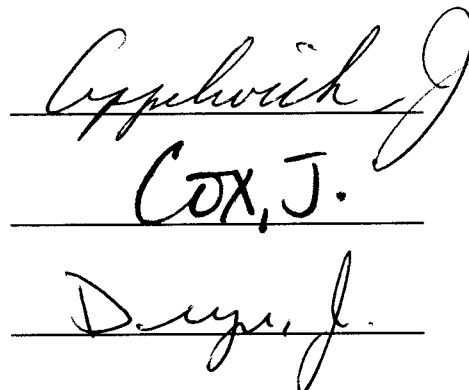 Appelwick, J
COX, J.
Dwyer, J.